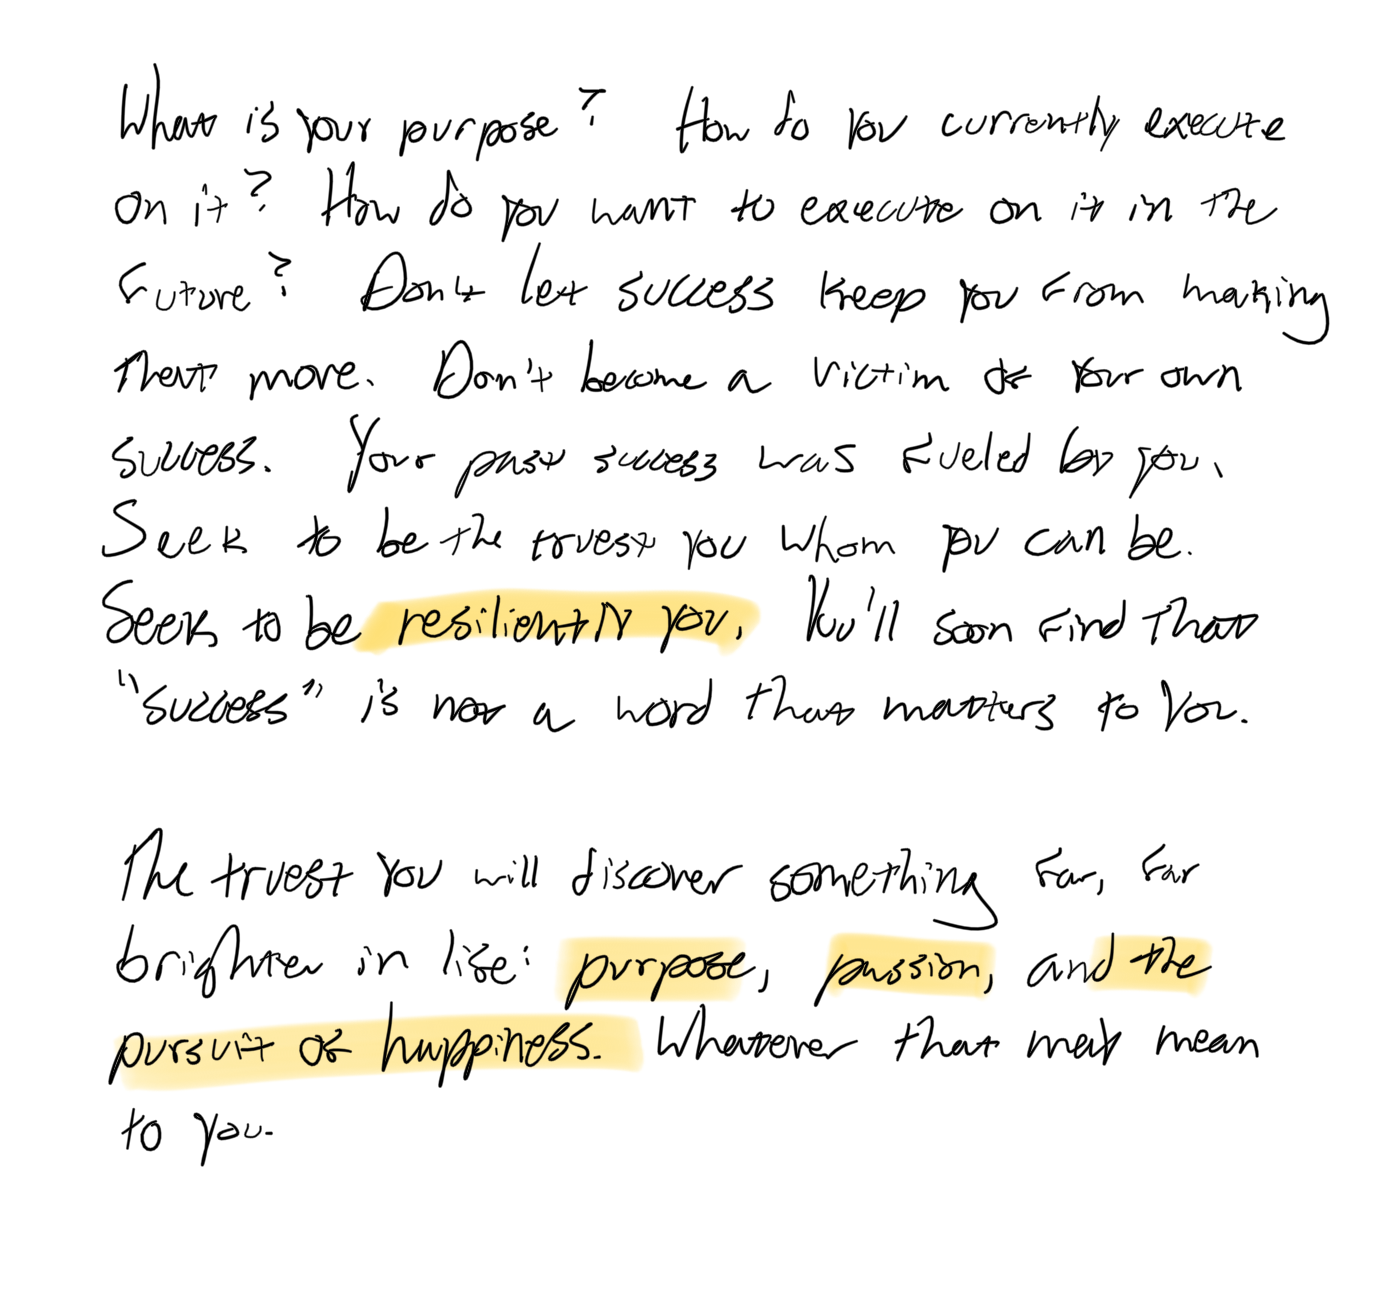 What is your purpose? How do you currently execute
on it? How do you want to execute on it in the
future? Don't let success keep you from making
that more. Don't become a victim of your own
success. Your past success was fueled by you.
Seek to be the truest you whom you can be.
Seek to be resiliently you. You'll soon find that
"success" is not a word that matters to you.
The truest you will discover something far, far
brighter in life: purpose, passion, and the
pursuit of happiness. Whatever that may mean
to you.